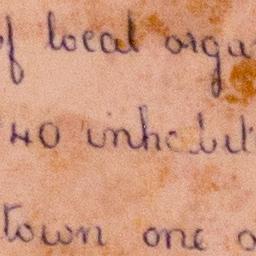 of local orga
40 inhabit
town one o